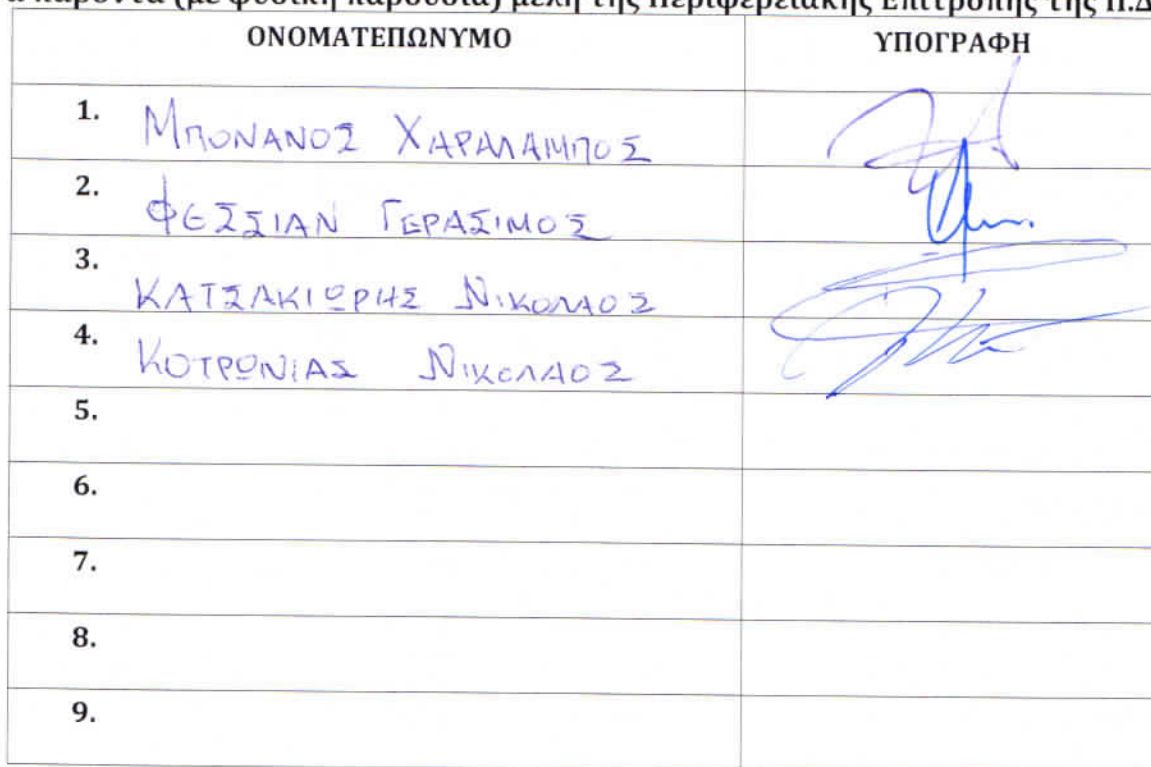 παρόντα (με φυσική παρουσία) μέλη της Περιφερειακής Επιτροπής της Π.Δ
ΟΝΟΜΑΤΕΠΩΝΥΜΟ ΥΠΟΓΡΑΦΗ
1. ΜΠΟΝΑΝΟΣ ΧΑΡΑΛΑΜΠΟΣ
2. ΦΕΣΣΙΑΝ ΓΕΡΑΣΙΜΟΣ
3. ΚΑΤΣΑΚΙΩΡΗΣ ΝΙΚΟΛΑΟΣ
4. ΚΟΤΡΩΝΙΑΣ ΝΙΚΟΛΑΟΣ
5.
6.
7.
8.
9.